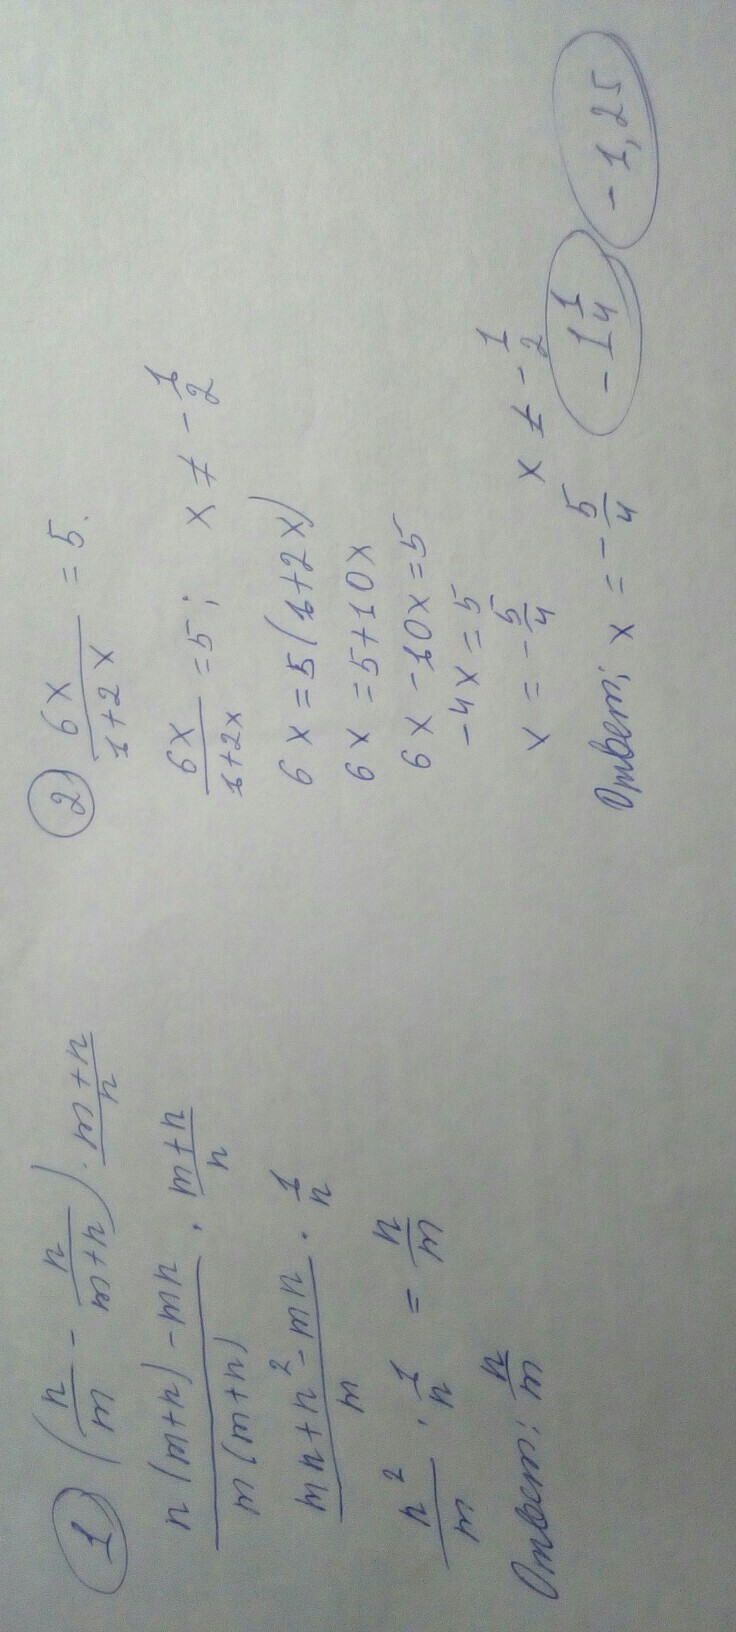 ① (n/m - n/(m+n)) · (m+n)/n
(n(m+n) - mn)/(m(m+n)) · (m+n)/n
(mn+n² - mn)/m · 1/n
n²/m · 1/n = n/m
Ответ: n/m
② 6x/(1+2x) = 5.
6x/(1+2x) = 5; x ≠ - 1/2
6x = 5(1+2x)
6x = 5+10x
6x - 10x = 5
-4x = 5
x = - 5/4 x ≠ - 1/2
Ответ: x = - 5/4 - 1 1/4 - 1,25